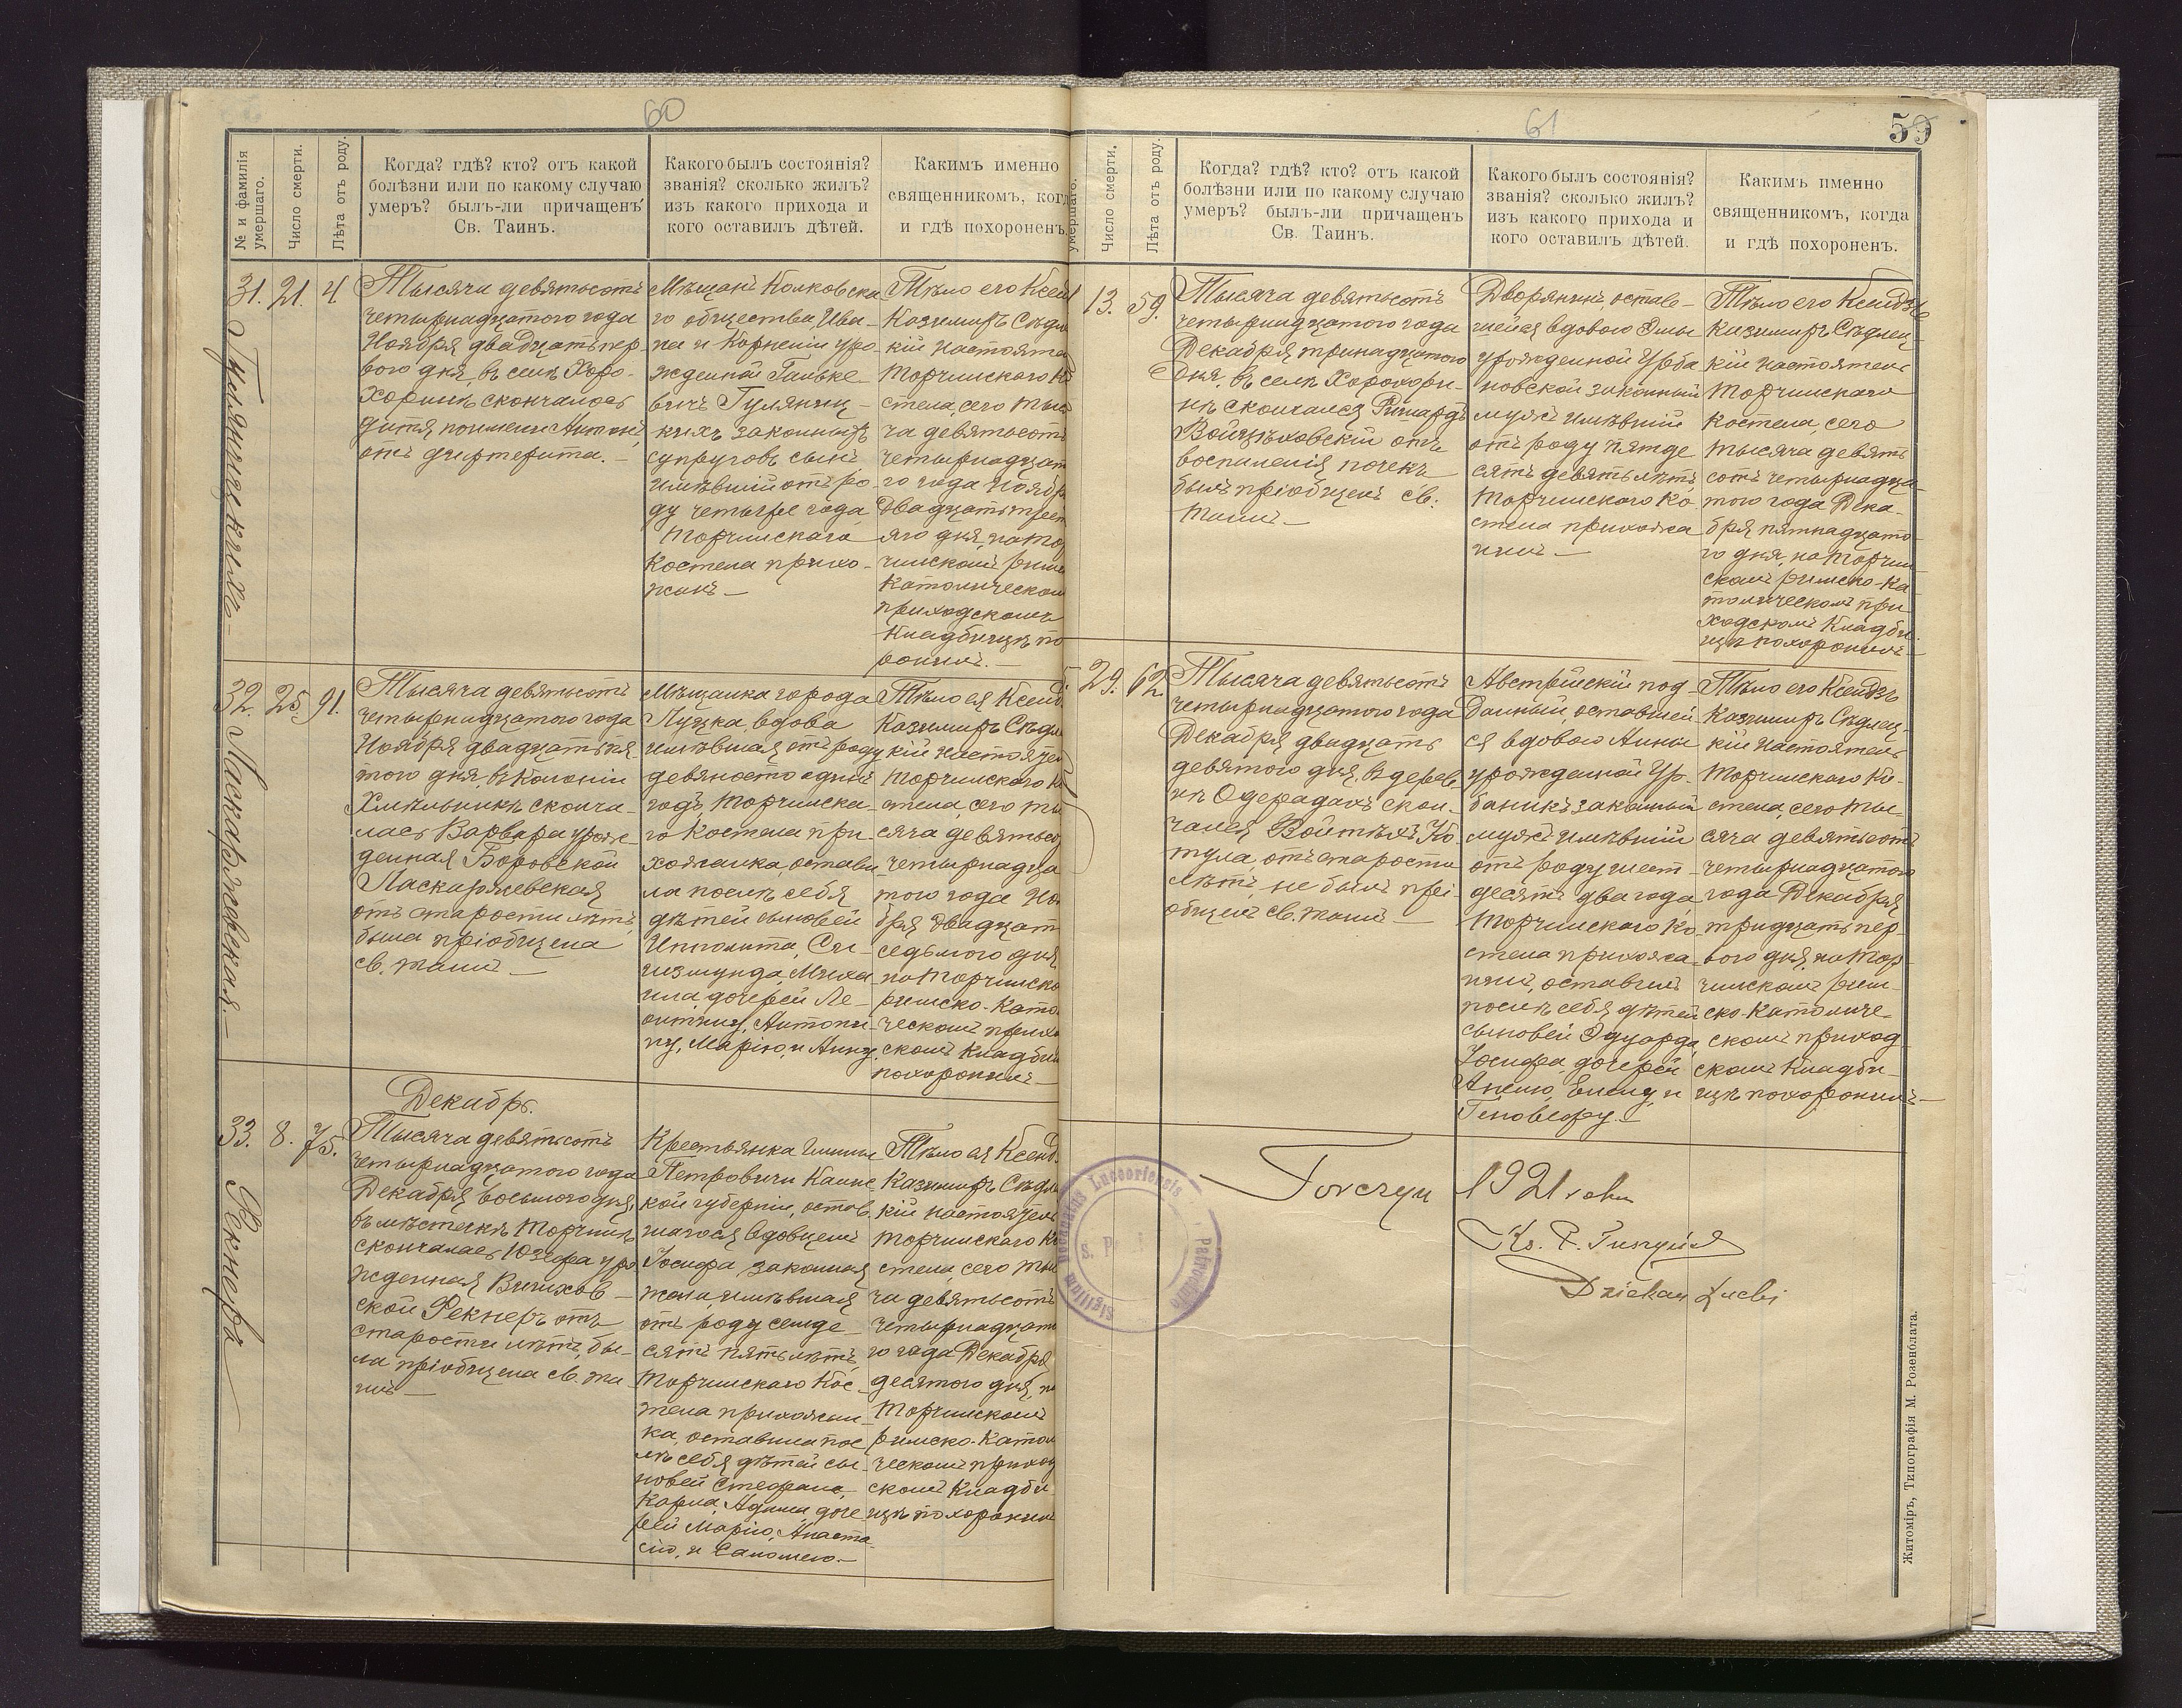 60
№ и фамилія умершаго.
Число смерти.
Лѣта отъ роду.
Когда? гдѣ? кто? отъ какой
болѣзни или по какому случаю
умеръ? былъ-ли причащенъ
Св. Таинъ.
Какого былъ состоянія?
званія? сколько жилъ?
изъ какого прихода и
кого оставилъ дѣтей.
Какимъ именно
священникомъ, когд
и гдѣ похороненъ.
31.
21.
4
Тысяча девятьсотъ
четырнадцатого года
Ноября двадцать пер-
вого дня, въ селѣ Хоро-
хоринѣ скончалось
дитя по имени Антоній,
отъ дифтерита. —
Мѣщанъ Колковска
го общества Ива-
на и Корнеліи уро-
жденной Галъке-
вичъ Гуляниц-
кихъ законныхъ
супруговъ сынъ
имѣвшій отъ ро-
ду четыре года
Торчинскаго
Костела прихо-
жанъ —
Тѣло его Ксен
Казимиръ Сѣдле
кій Настояте
Торчинскаго К
стела, сего тыс
ча девятьсотъ
четырнадцат
го года Нояб
двадцать трет
яго дня, на Тор
чинскомъ римс
католическом
приходскомъ
Кладбищѣ по
ронилъ. —
32.
25.
91.
Ласкаржевская. —
Тысяча девятьсотъ
четырнадцатого года
Ноября двадцать пя-
того дня, въ колоніи
Хмѣльникѣ сконча-
лась Варвара урож-
денная Боровской
Ласкаржевская
отъ старости лѣтъ,
была пріобщена
св. таинъ —
Мѣщанка города
Луцка, вдова
имѣвшая отъ роду
девяносто одинъ
годъ, Торчинска-
го Костела при-
хожанка, остави
ла послѣ себя
дѣтей сыновей
Ипполита, Си-
гизмунда, Миха
ила, дочерей Ле-
онтину, Антони-
ну, Марію, и Анну.
Тѣло ея Ксенд
Казимиръ Сѣдле
кій Настояте
Торчинскаго К
стела, сего ты
сяча девятьсо
четырнадца
того года Но
бря двадцат
седьмого дня
на Торчинско
римско-като
ческомъ прих
скомъ Кладби
похоронилъ —
Декабрь.
33.
8.
75.
Рекнеръ
Тысяча девятьсотъ
четырнадцатого года
Декабря восьмого дня,
въ мѣстечкѣ Торчинѣ
скончалась Юзефа уро
жденная Вичихов-
ской Рекнеръ отъ
старости лѣтъ, бы-
ла пріобщена св. та-
инъ —
Крестьянка Гмины
Петровичи Калис-
кой губерніи, остав
шагося вдовцемъ
Іосифа законная
жена, имѣвшая
отъ роду семьде-
сятъ пять лѣтъ,
Торчинскаго Кос-
тела прихожан-
ка, оставила пос
лѣ себя дѣтей сы-
новей Стефана,
Карла, Адама, доче
рей Марію, Анаста-
сію, и Саломею. —
Тѣло ея Ксенд
Казимиръ Сѣдле
кій Настоятель
Торчинскаго К
стела, сего ты
ча девятьсотъ
четырнадцат
го года Декабря
десятого дня, н
Торчинскомъ
римско-катол
ческомъ приход
скомъ Кладби
щѣ похоронил
61
59
умершаго.
Число смерти.
Лѣта отъ роду.
Когда? гдѣ? кто? отъ какой
болѣзни или по какому случаю
умеръ? былъ-ли причащенъ
Св. Таинъ.
Какого былъ состоянія?
званія? сколько жилъ?
изъ какого прихода и
кого оставилъ дѣтей.
Какимъ именно
священникомъ, когда
и гдѣ похороненъ.
13.
59.
Тысяча девятьсотъ
четырнадцатого года
Декабря тринадцатого
дня, въ селѣ Хорохори-
нѣ скончался Ричардъ
Войцѣховскій отъ
воспаленія почекъ
былъ пріобщенъ св.
таинъ —
Дворянинъ, остав-
шейся вдовою Эмы
урожденной Урба
новской законный
мужъ имѣвшій
отъ роду пятьде
сятъ девять лѣтъ
Торчинскаго Ко
стела прихожа
нинъ —
Тѣло его Ксендзъ
Казимиръ Сѣдлец-
кій Настоятель
Торчинскаго
Костела, сего
тысяча девять
сотъ четырнадца-
того года Дека-
бря пятнадцато-
го дня, на Торчин
скомъ римско-ка-
толическомъ при
ходскомъ Кладби
щѣ похоронилъ —
29.
62.
Тысяча девятьсотъ
четырнадцатого года
Декабря двадцать
девятого дня, въ дерев
нѣ Одерадахъ скон-
чался Войтѣхъ Ко-
тула, отъ старости
лѣтъ, не былъ прі-
общенъ св. таинъ —
Австрійскій под-
данный, оставшей-
ся вдовою Анны
урожденной Ур-
баникъ законный
мужъ имѣвшій
отъ роду шесть
десятъ два года,
Торчинскаго Ко-
стела прихожа-
нинъ, оставилъ
послѣ себя дѣтей
сыновей Эдуарда,
Іосифа, дочерей
Анелю, Елену, и
Геновефу. —
Тѣло его Ксендзъ
Казимиръ Сѣдлец-
кій Настоятель
Торчинскаго Ко-
стела, сего ты-
сяча девятьсотъ
четырнадцатого
года Декабря
тридцать пер-
вого дня, на Тор-
чинскомъ рим-
ско-католиче-
скомъ приход-
скомъ Кладби-
щѣ похоронилъ —
Torczyn 1921 roku
Dziekan Łucki
Sigillum Decanatus Luceoriensis
Житоміръ, Типографія М. Розенблата.